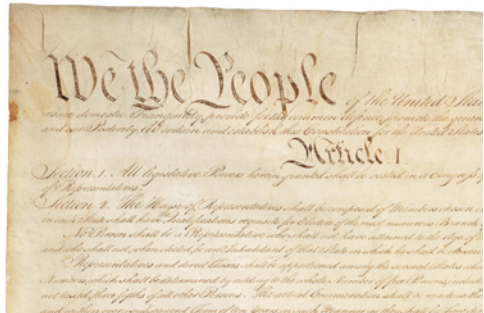 We the People of the United Stat
insure domestic Tranquility, provide for the common defence, promote the general
and our Posterity, do ordain and establish this Constitution for the United States
Article I.
Section 1. All legislative Powers herein granted shall be vested in a Congress of
of Representatives.
Section 2. The House of Representatives shall be composed of Members chosen
in each State shall have the Qualifications requisite for Electors of the most numerous Branch
No Person shall be a Representative who shall not have attained to the Age of
and who shall not, when elected, be an Inhabitant of that State in which he shall be chosen
Representatives and direct Taxes shall be apportioned among the several States
Numbers, which shall be determined by adding to the whole Number of free Persons,
not taxed, three fifths of all other Persons. The actual Enumeration shall be made
and within every subsequent Term of ten Years, in such Manner as they shall